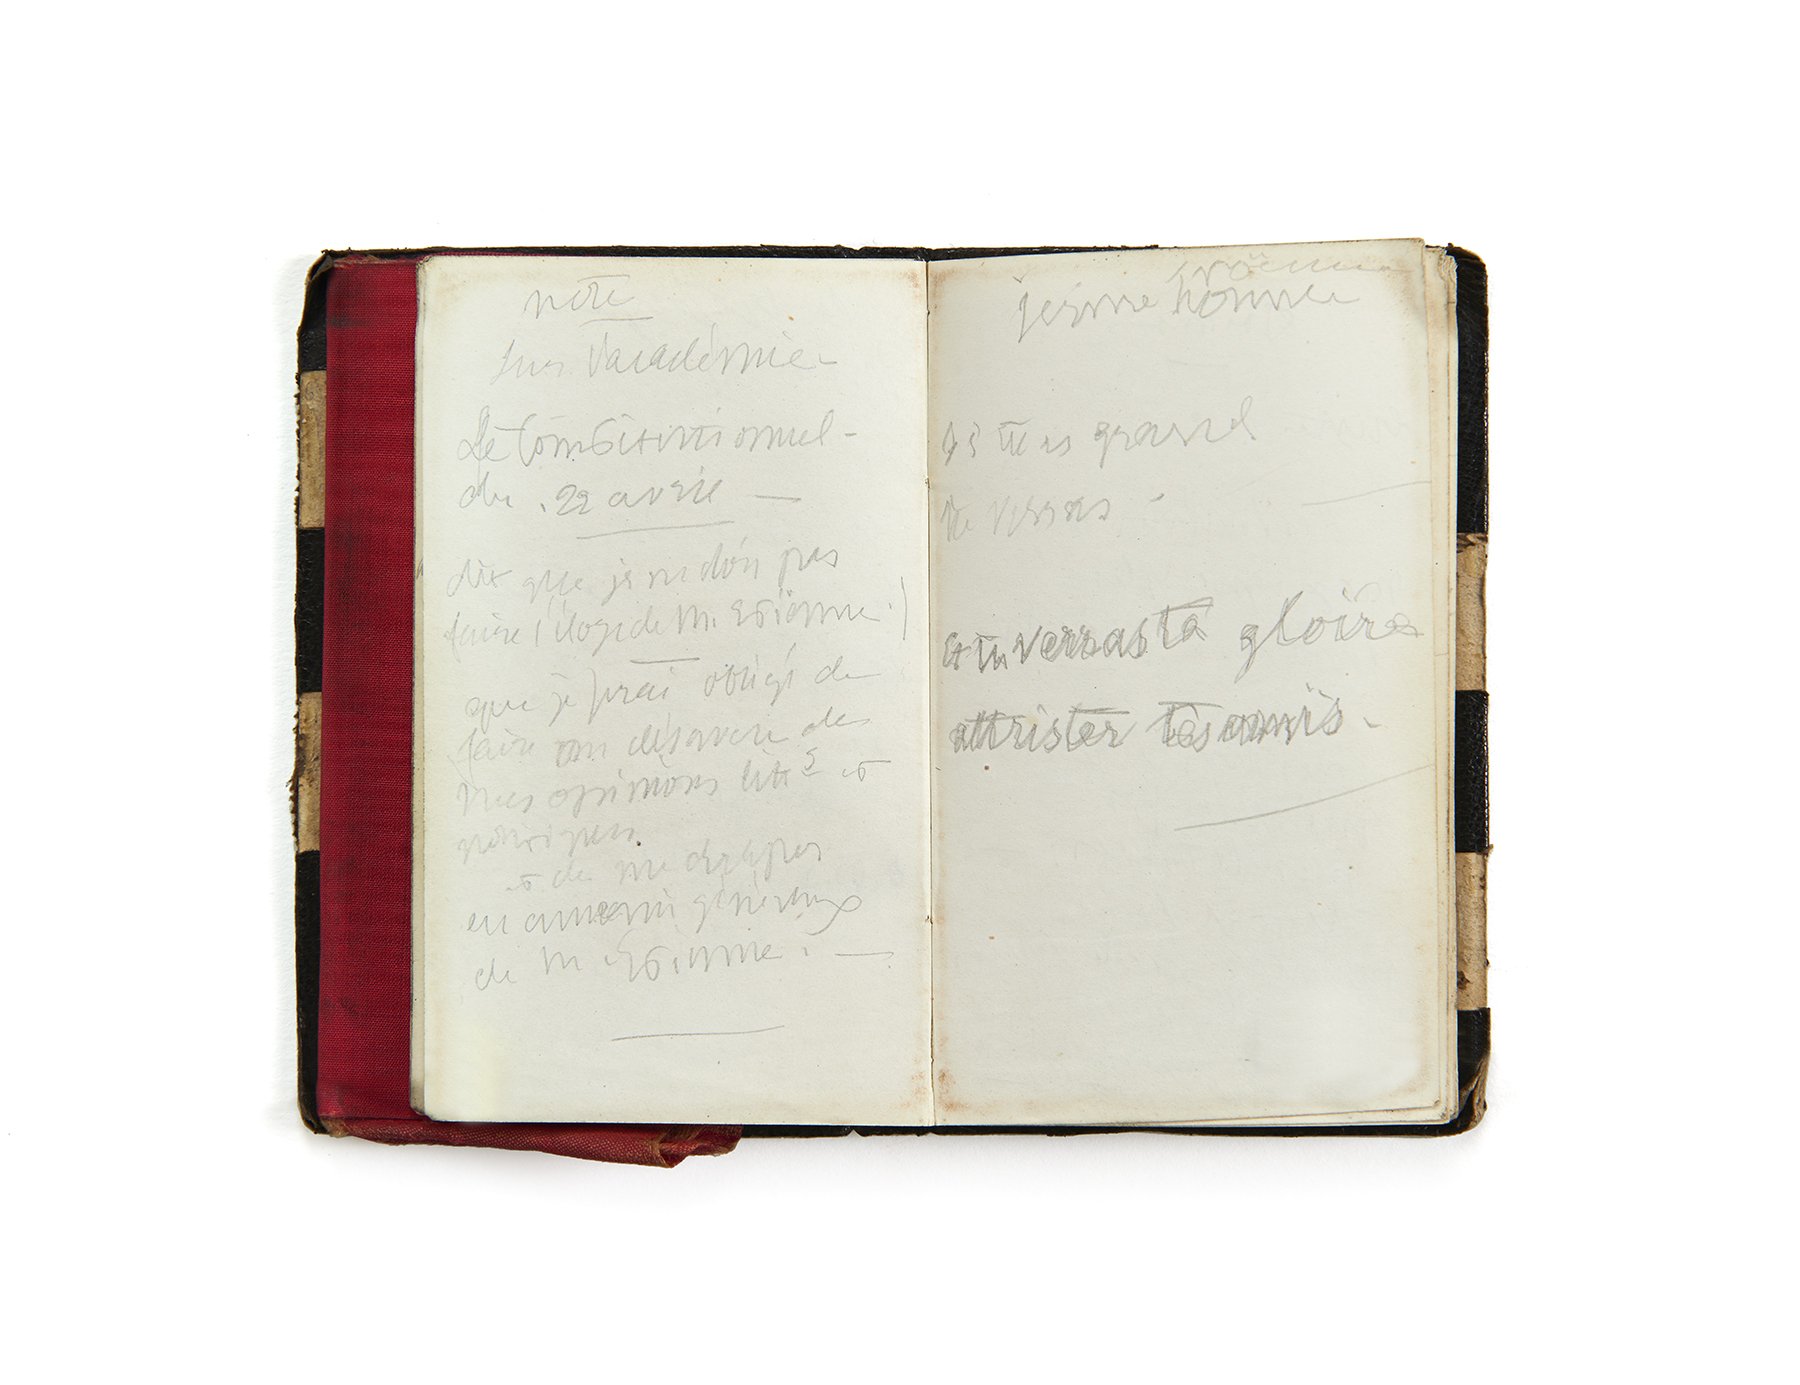 note
sur l'académie -
Le Constitutionnel -
du 22 avril —
dit que je ne dois pas
faire (l'éloge de M. Etienne.)
que je serai obligé de
faire un désaveu de
mes opinions litt^s et
politiques
et de me
en ennemi généreux
de M. Etienne. —
jeune homme
si tu es grand
tu verras -
Et tu verras ta gloire
attrister tes amis. -